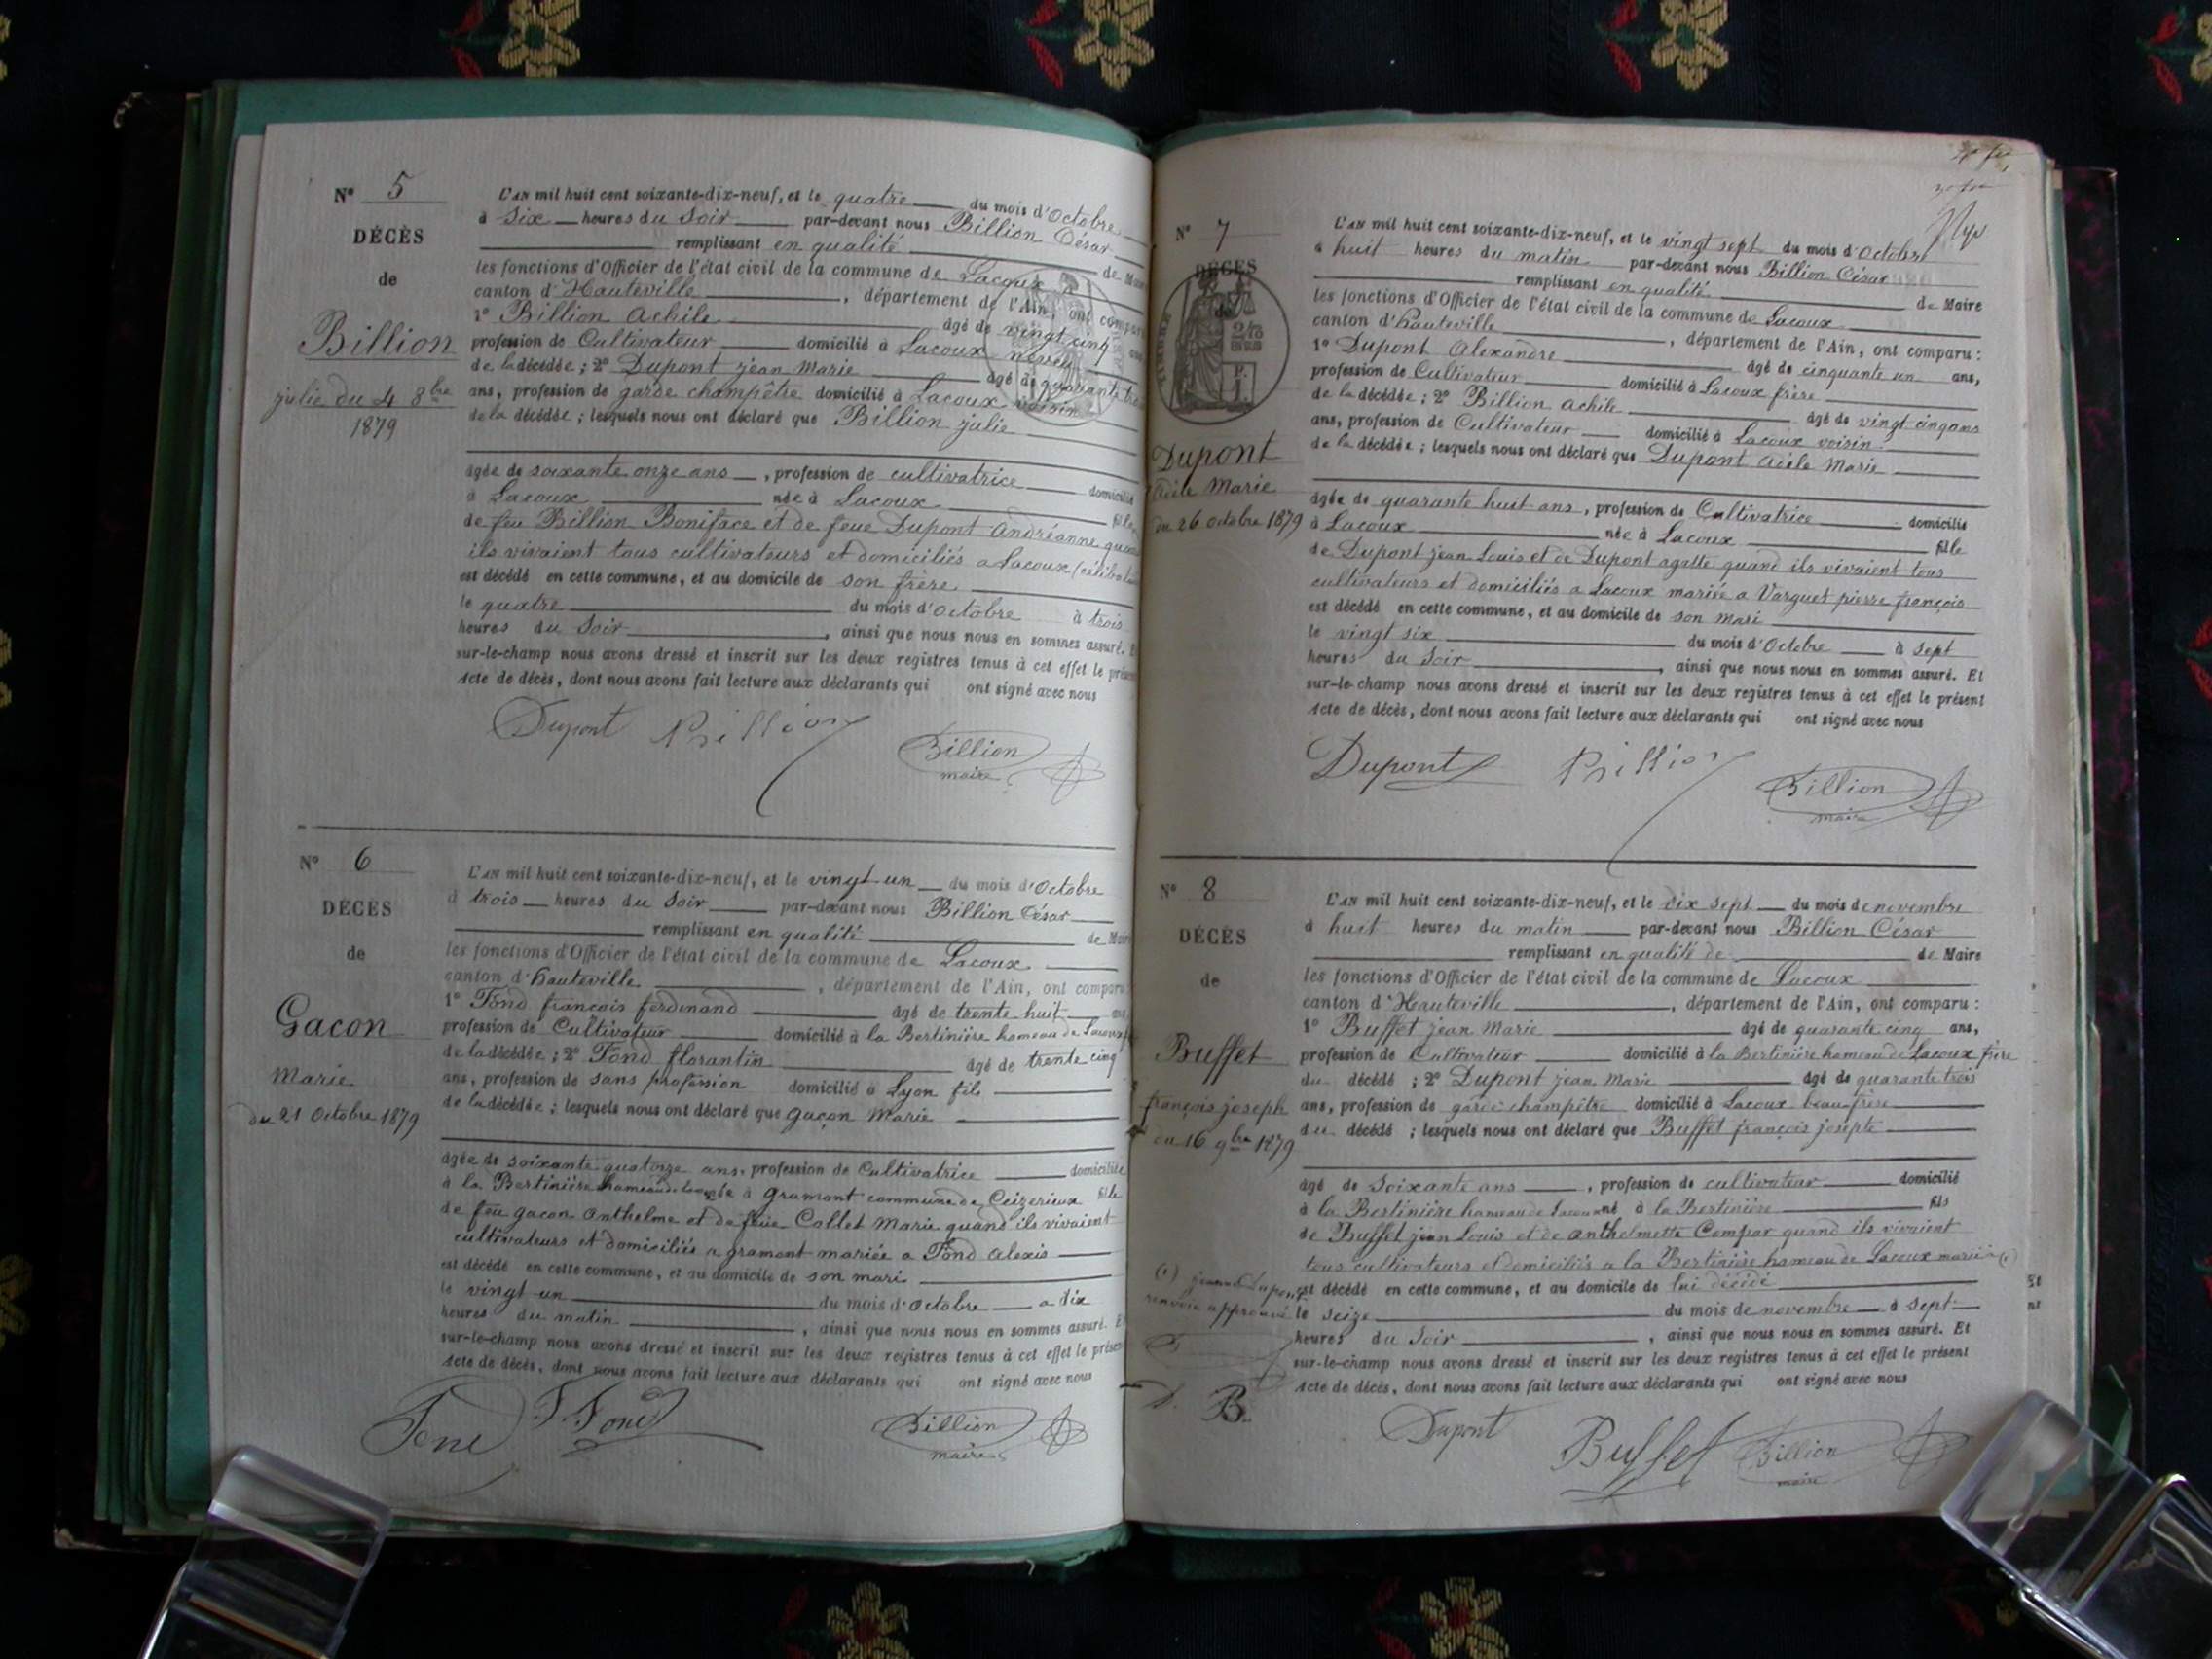 N° 5
DÉCÈS
de
Billion
julie du 4 8bre
1879
L'AN mil huit cent soixante-dix-neuf, et le quatre du mois d'Octobre
à Six heures du Soir par-devant nous Billion César
remplissant en qualité de Maire
les fonctions d'Officier de l'état civil de la commune de Lacoux
canton d'Hauteville, département de l'Ain, ont comparu
1° Billion Achile âgé de vingt cinq ans
profession de Cultivateur domicilié à Lacoux neveu
de la décédée; 2° Dupont jean Marie âgé de quarante trois
ans, profession de garde champêtre domicilié à Lacoux voisin
de la décédée; lesquels nous ont déclaré que Billion julie
âgée de soixante onze ans, profession de cultivatrice domicilié
à Lacoux née à Lacoux fille
de feu Billion Boniface et de feue Dupont Andréanne quand
ils vivaient tous cultivateurs et domiciliés a Lacoux (célibataire
est décédé en cette commune, et au domicile de son frère
le quatre du mois d'Octobre à trois
heures du Soir, ainsi que nous nous en sommes assuré. Et
sur-le-champ nous avons dressé et inscrit sur les deux registres tenus à cet effet le présent
Acte de décès, dont nous avons fait lecture aux déclarants qui ont signé avec nous
Dupont Billion Billion
maire
N° 6
DÉCÈS
de
Gacon
Marie
du 21 Octobre 1879
L'AN mil huit cent soixante-dix-neuf, et le vingt un du mois d'Octobre
à trois heures du Soir par-devant nous Billion César
remplissant en qualité de Maire
les fonctions d'Officier de l'état civil de la commune de Lacoux
canton d'hauteville, département de l'Ain, ont comparu
1° Fond françois ferdinand âgé de trente huit ans
profession de Cultivateur domicilié à la Bertinière hameau de Lacoux
de la décédée; 2° Fond florantin âgé de trente cinq
ans, profession de sans profession domicilié à Lyon fils
de la décédée; lesquels nous ont déclaré que gaçon Marie
âgée de soixante quatorze ans, profession de Cultivatrice domiciliée
à la Bertinière hameau de Lacoux née à gramont commune de Ceizerieux fille
de feu gacon Anthelme et de feue Callet Marie quand ils vivaient
cultivateurs et domiciliés a gramont mariée a Fond Alexis
est décédé en cette commune, et au domicile de son mari
le vingt un du mois d'Octobre a dix
heures du matin, ainsi que nous nous en sommes assuré. Et
sur-le-champ nous avons dressé et inscrit sur les deux registres tenus à cet effet le présent
Acte de décès, dont nous avons fait lecture aux déclarants qui ont signé avec nous
Fond F. Fond Billion
maire
N° 7
DÉCÈS
de
TIMBRE
Dupont
Adèle Marie
du 26 Octobre 1879
L'AN mil huit cent soixante-dix-neuf, et le vingt sept du mois d'Octobre
à huit heures du matin par-devant nous Billion César
remplissant en qualité de Maire
les fonctions d'Officier de l'état civil de la commune de Lacoux
canton d'hauteville, département de l'Ain, ont comparu:
1° Dupont Alexandre âgé de cinquante un ans,
profession de Cultivateur domicilié à Lacoux frère
de la décédée; 2° Billion Achile âgé de vingt cinq ans
ans, profession de Cultivateur domicilié à Lacoux voisin
de la décédée; lesquels nous ont déclaré que Dupont Adèle Marie
âgée de quarante huit ans, profession de Cultivatrice domicilié
à Lacoux née à Lacoux fille
de Dupont jean Louis et de Dupont agatte quand ils vivaient tous
cultivateurs et domiciliés a Lacoux mariée a Varguet pierre françois
est décédé en cette commune, et au domicile de son mari
le vingt six du mois d'Octobre à sept
heures du Soir, ainsi que nous nous en sommes assuré. Et
sur-le-champ nous avons dressé et inscrit sur les deux registres tenus à cet effet le présent
Acte de décès, dont nous avons fait lecture aux déclarants qui ont signé avec nous
Dupont Billion Billion
maire
N° 8
DÉCÈS
de
Buffet
françois joseph
du 16 9bre 1879
L'AN mil huit cent soixante-dix-neuf, et le dix sept du mois de novembre
à huit heures du matin par-devant nous Billion César
remplissant en qualité de de Maire
les fonctions d'Officier de l'état civil de la commune de Lacoux
canton d'Hauteville, département de l'Ain, ont comparu:
1° Buffet jean Marie âgé de quarante cinq ans,
profession de Cultivateur domicilié à la Bertinière hameau de Lacoux frère
du décédé; 2° Dupont jean Marie âgé de quarante trois
ans, profession de garde champêtre domicilié à Lacoux beau-frère
du décédé; lesquels nous ont déclaré que Buffet françois josepte
âgé de Soixante ans, profession de cultivateur domicilié
à la Bertinière hameau de Lacoux né à la Bertinière fils
de Buffet jean Louis et de anthelmette Compar quand ils vivaient
tous cultivateurs et domiciliés a la Bertinière hameau de Lacoux marié à (1)
est décédé en cette commune, et au domicile de lui décédé
le seize du mois de novembre à sept
heures du Soir, ainsi que nous nous en sommes assuré. Et
sur-le-champ nous avons dressé et inscrit sur les deux registres tenus à cet effet le présent
Acte de décès, dont nous avons fait lecture aux déclarants qui ont signé avec nous
(1) Dupont
renvoie approuvé
B.
Dupont Buffet Billion
maire